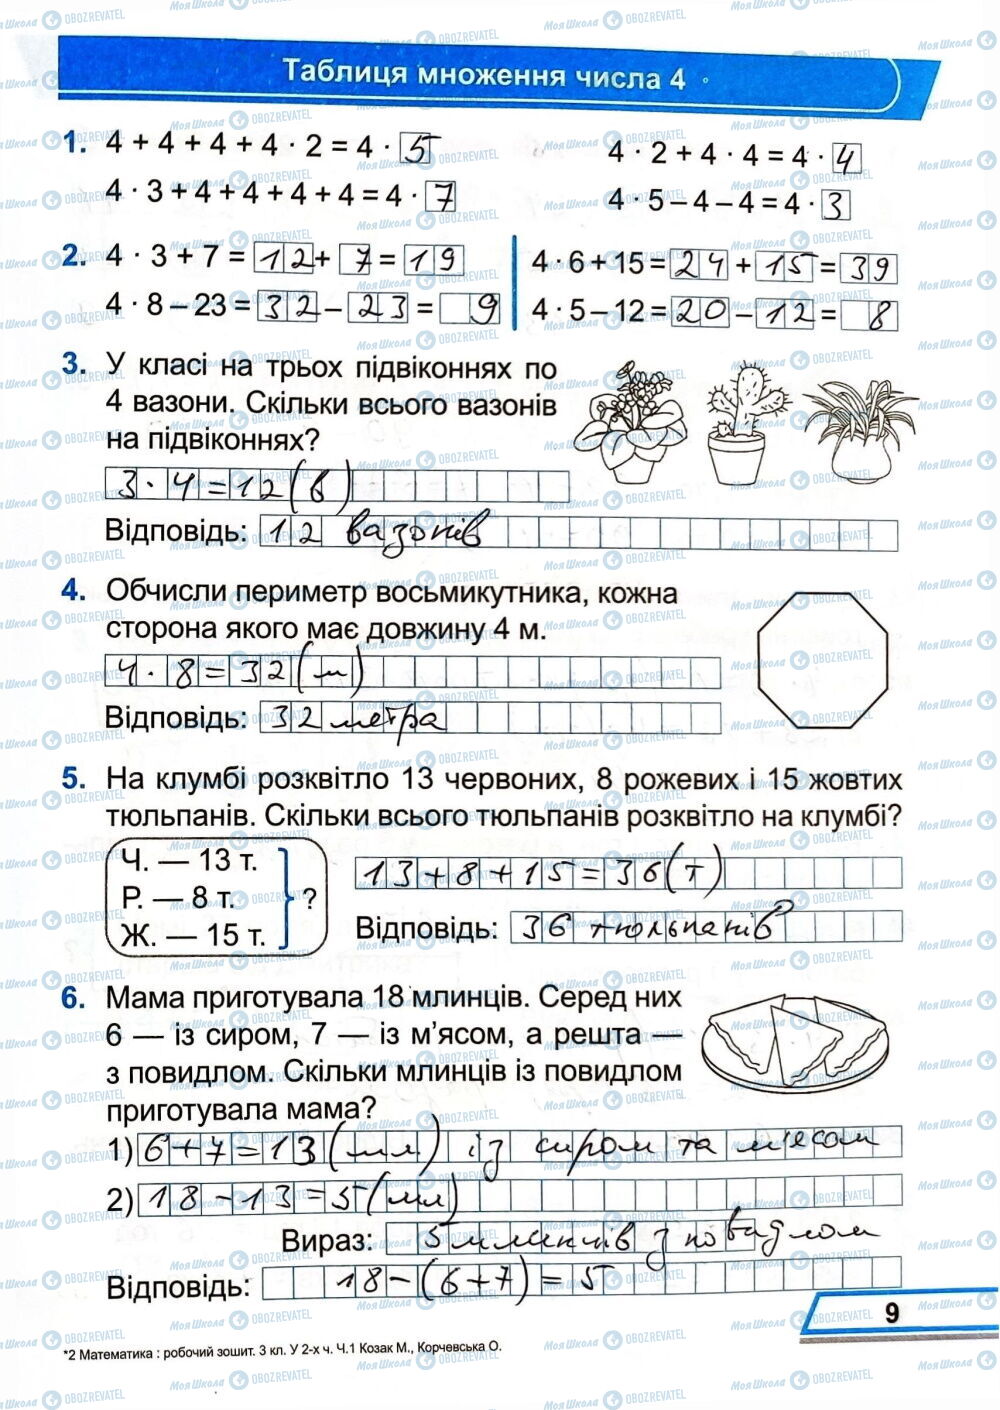 Таблиця множення числа 4
1. 4 + 4 + 4 + 4 · 2 = 4 · 5
4 · 2 + 4 · 4 = 4 · 4
4 · 3 + 4 + 4 + 4 + 4 = 4 · 7
4 · 5 – 4 – 4 = 4 · 3
2. 4 · 3 + 7 = 12 + 7 = 19
4 · 6 + 15 = 24 + 15 = 39
4 · 8 – 23 = 32 – 23 = 9
4 · 5 – 12 = 20 – 12 = 8
3. У класі на трьох підвіконнях по
4 вазони. Скільки всього вазонів
на підвіконнях?
3 · 4 = 12 (в)
Відповідь: 12 вазонів
4. Обчисли периметр восьмикутника, кожна
сторона якого має довжину 4 м.
4 · 8 = 32 (м)
Відповідь: 32 метра
5. На клумбі розквітло 13 червоних, 8 рожевих і 15 жовтих
тюльпанів. Скільки всього тюльпанів розквітло на клумбі?
Ч. — 13 т.
Р. — 8 т. ?
Ж. — 15 т.
13 + 8 + 15 = 36 (т)
Відповідь: 36 тюльпанів
6. Мама приготувала 18 млинців. Серед них
6 — із сиром, 7 — із м'ясом, а решта —
з повидлом. Скільки млинців із повидлом
приготувала мама?
1) 6 + 7 = 13 (мл) із сиром та м'ясом
2) 18 – 13 = 5 (мл)
Вираз: 5 млинців з повидлом
Відповідь: 18 – (6 + 7) = 5
9
*2 Математика : робочий зошит. 3 кл. У 2-х ч. Ч.1 Козак М., Корчевська О.
МояШкола OBOZREVATEL